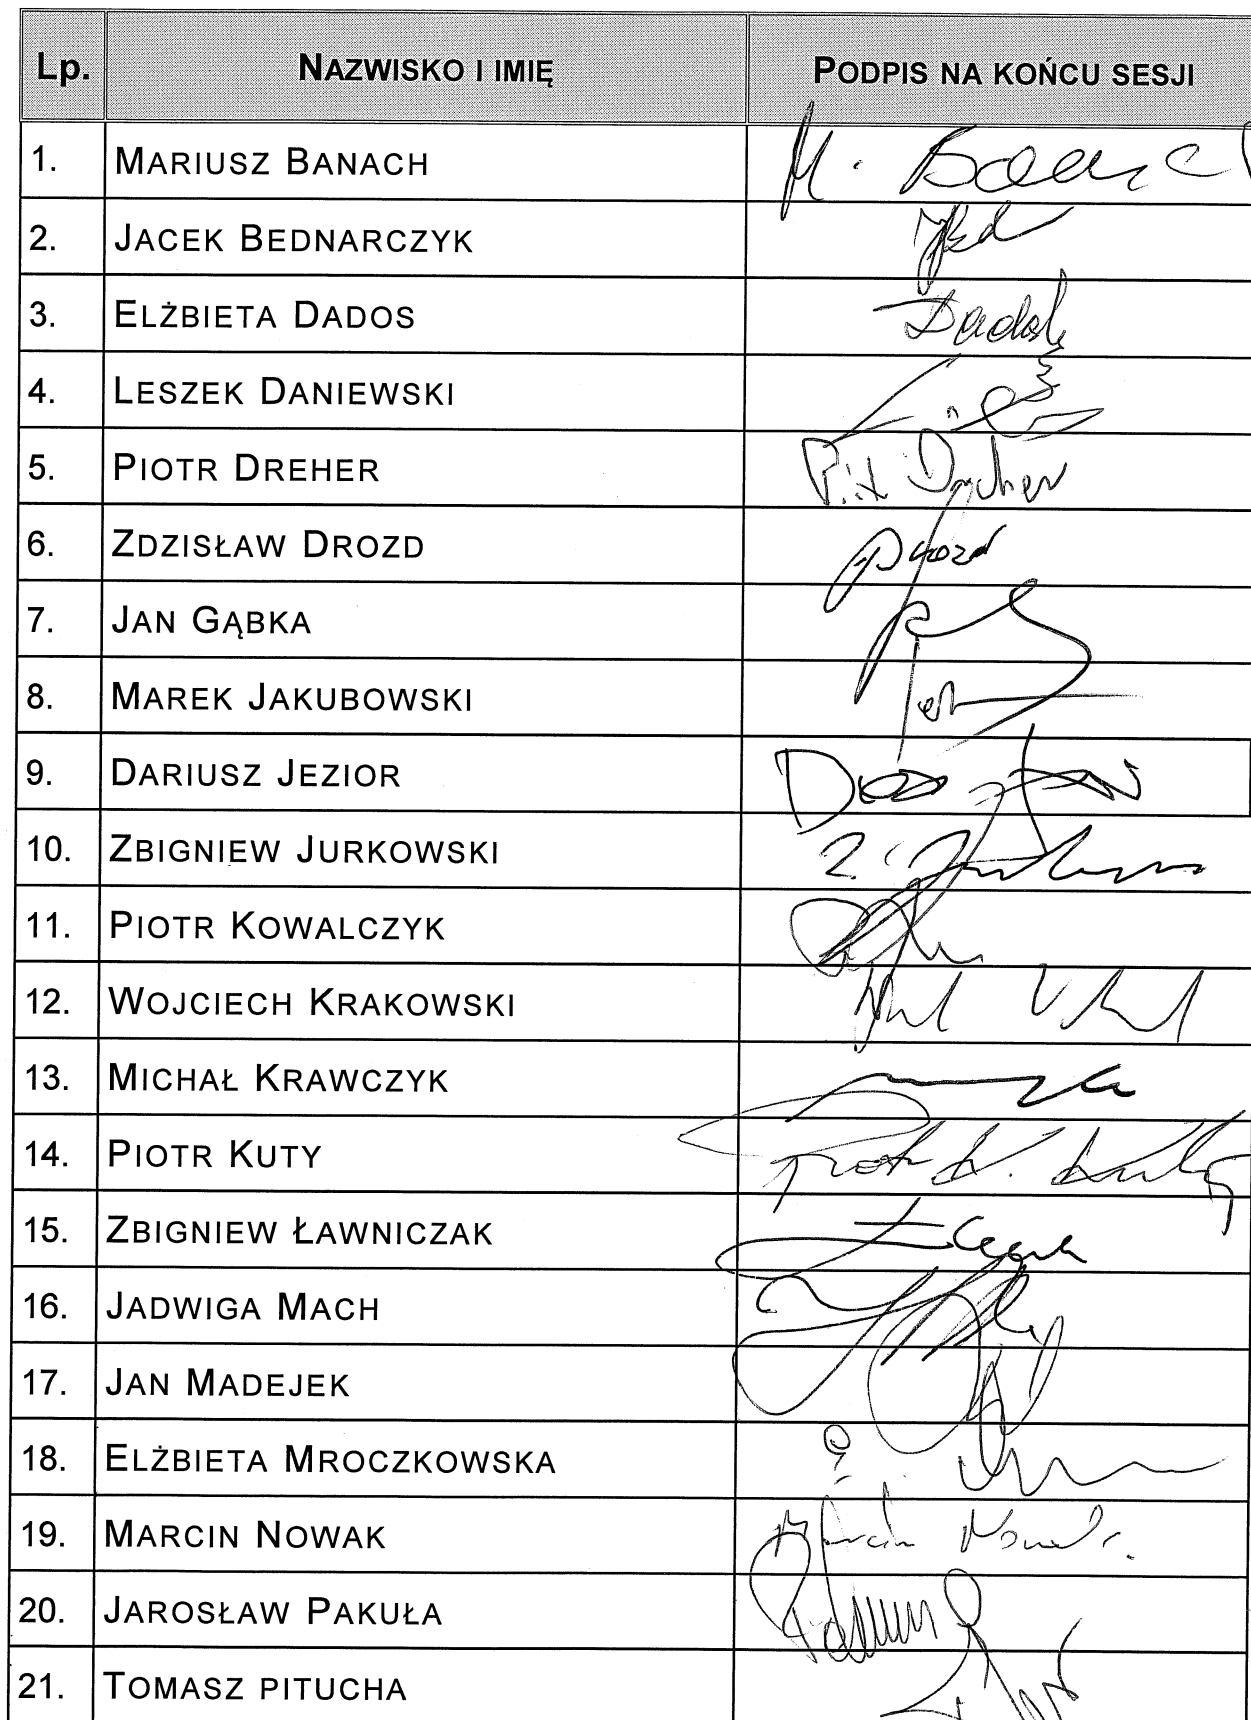 Lp. NAZWISKO I IMIĘ PODPIS NA KOŃCU SESJI
1. MARIUSZ BANACH M. Banac
2. JACEK BEDNARCZYK
3. ELŻBIETA DADOS Dados
4. LESZEK DANIEWSKI
5. PIOTR DREHER Piotr Dreher
6. ZDZISŁAW DROZD Drozd
7. JAN GĄBKA
8. MAREK JAKUBOWSKI
9. DARIUSZ JEZIOR
10. ZBIGNIEW JURKOWSKI
11. PIOTR KOWALCZYK
12. WOJCIECH KRAKOWSKI
13. MICHAŁ KRAWCZYK
14. PIOTR KUTY Piotr K. Kuty
15. ZBIGNIEW ŁAWNICZAK
16. JADWIGA MACH
17. JAN MADEJEK
18. ELŻBIETA MROCZKOWSKA
19. MARCIN NOWAK Marcin Nowak
20. JAROSŁAW PAKUŁA
21. TOMASZ PITUCHA